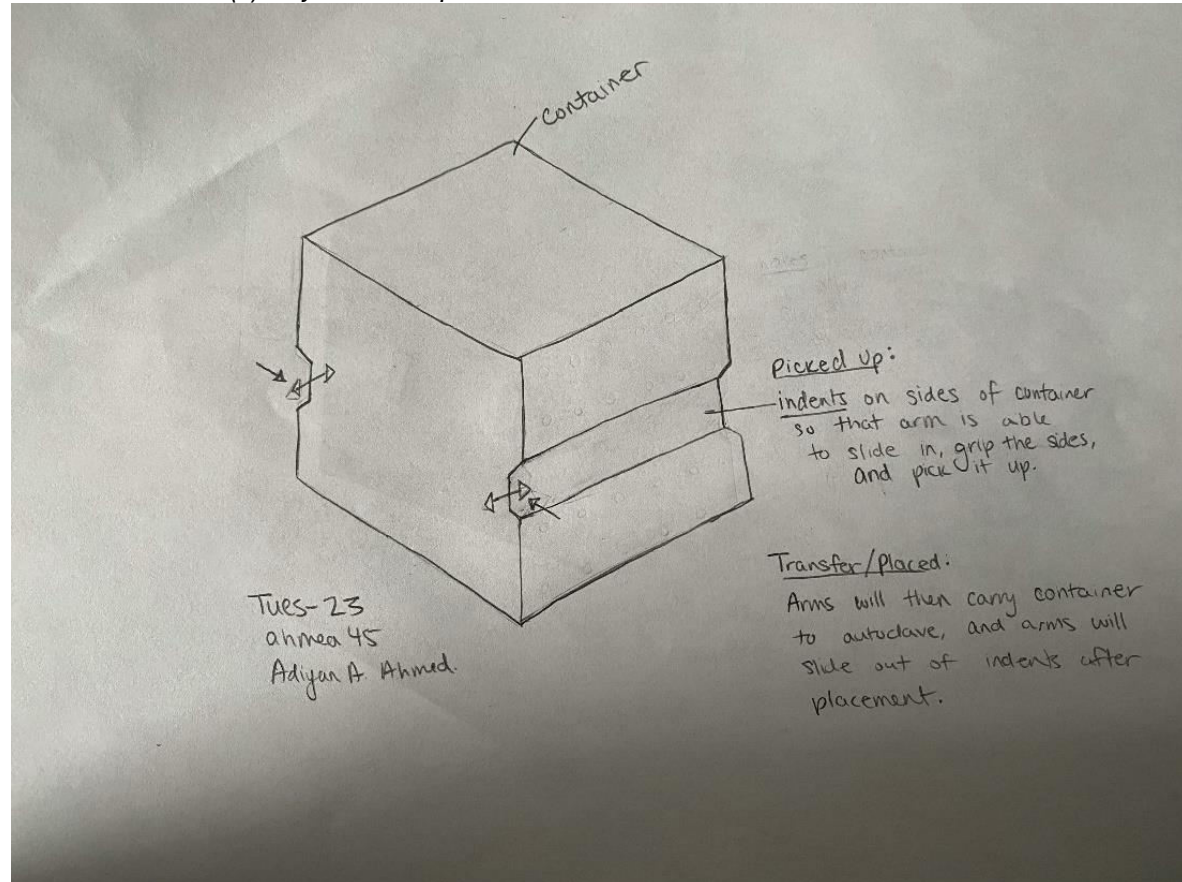 Container
Picked Up:
indents on sides of container
so that arm is able
to slide in, grip the sides,
and pick it up.
Transfer/Placed:
Arms will then carry container
to autoclave, and arms will
slide out of indents after
placement.
Tues-23
ahmea 45
Adiyan A. Ahmed.